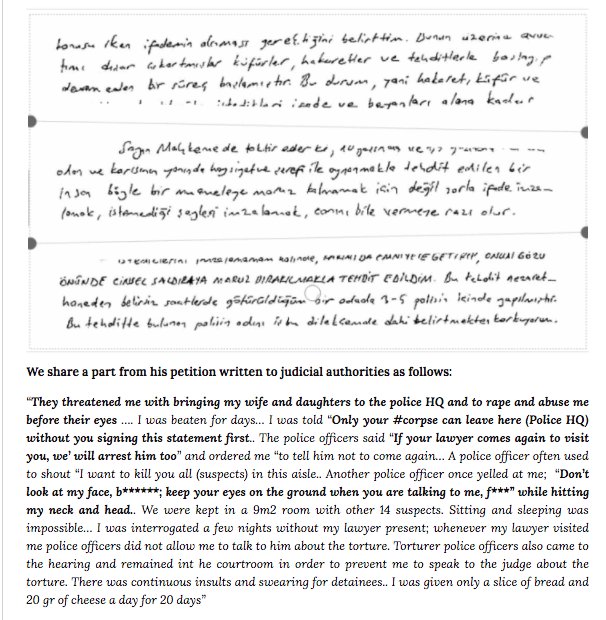 konusu iken ifademin alınması gerektiğini belirttim. Bunun üzerine avuka-
tımı dışarı çıkartmışlar küfürler, hakaretler ve tehditlerle başlayıp
devam eden bir süreç başlamıştır. Bu durum, yani hakaret, küfür ve
istedikleri ifade ve beyanları alana kadar
Sayın Mahkeme de takdir eder ki,
olan ve karısının yanında haysiyet ve şerefi ile oynanmakla tehdit edilen bir
insan böyle bir muameleye maruz kalmamak için değil zorla ifade imza-
lamak, istemediği şeyleri imzalamak, canını bile vermeye razı olur.
istediklerini imzalamamam halinde, karımı da emniyete getirip, onun gözü
ÖNÜNDE CİNSEL SALDIRAYA MARUZ BIRAKILMAKLA TEHDİT EDİLDİM. Bu tehdit nezaret-
haneden belirsiz saatlerde götürüldüğüm bir odada 3-5 polisin içinde yapılmıştır.
Bu tehditte bulunan polisin adını işbu dilekçemde dahi belirtmekten korkuyorum.
We share a part from his petition written to judicial authorities as follows:
“They threatened me with bringing my wife and daughters to the police HQ and to rape and abuse me
before their eyes .... I was beaten for days... I was told “Only your #corpse can leave here (Police HQ)
without you signing this statement first.. The police officers said “If your lawyer comes again to visit
you, we’ will arrest him too” and ordered me “to tell him not to come again... A police officer often used
to shout “I want to kill you all (suspects) in this aisle.. Another police officer once yelled at me;  “Don’t
look at my face, b******; keep your eyes on the ground when you are talking to me, f***” while hitting
my neck and head.. We were kept in a 9m2 room with other 14 suspects. Sitting and sleeping was
impossible... I was interrogated a few nights without my lawyer present; whenever my lawyer visited
me police officers did not allow me to talk to him about the torture. Torturer police officers also came to
the hearing and remained int he courtroom in order to prevent me to speak to the judge about the
torture. There was continuous insults and swearing for detainees.. I was given only a slice of bread and
20 gr of cheese a day for 20 days”